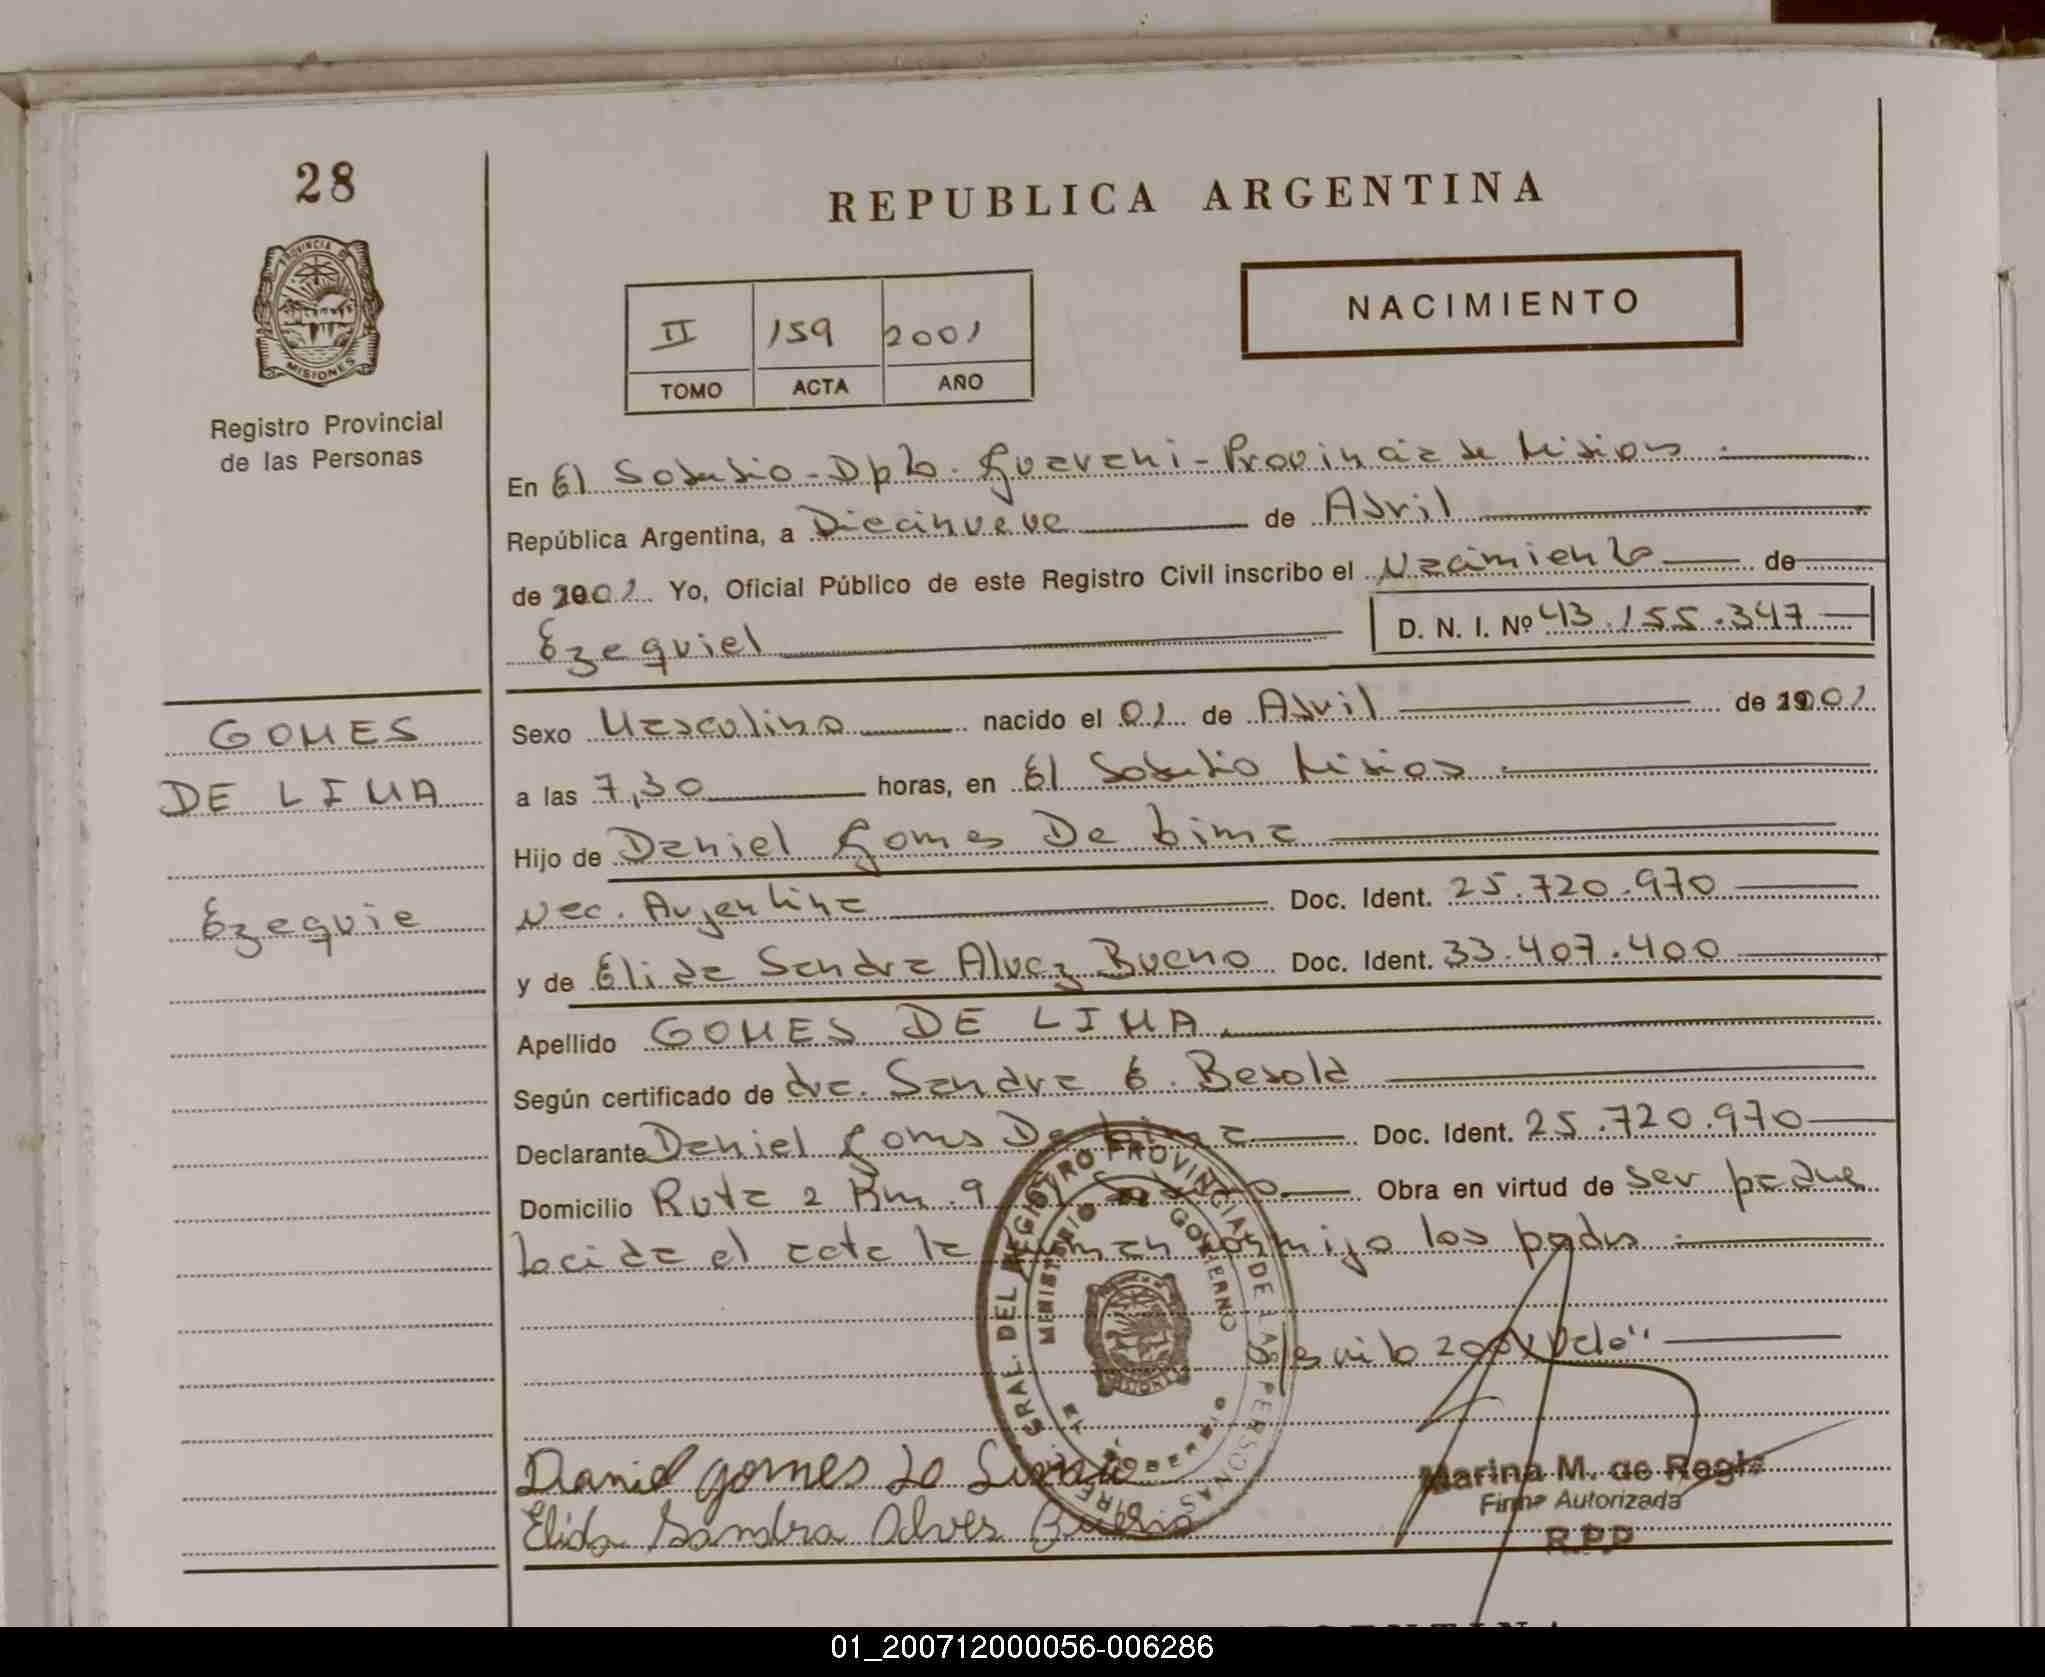 28
REPUBLICA ARGENTINA
PROVINCIA DE MISIONES
NACIMIENTO
II 159 2001
TOMO ACTA AÑO
Registro Provincial
de las Personas
En El Soberbio - Dpto. Guarani - Provincia de Misiones
República Argentina, a Diecinueve de Abril
de 2001 Yo, Oficial Público de este Registro Civil inscribo el Nacimiento de
Ezequiel D. N. I. Nº 43.155.347
GOMES
DE LIMA
Ezequie
Sexo Masculino nacido el 01 de Abril de 2001
a las 7,30 horas, en El Soberbio Misiones
Hijo de Daniel Gomes De Lima
Nac. Argentina Doc. Ident. 25.720.970
y de Elida Sandra Alvez Bueno Doc. Ident. 33.407.400
Apellido GOMES DE LIMA
Según certificado de dra. Sandra E. Besold
Declarante Daniel Gomes De Lima Doc. Ident. 25.720.970
Domicilio Ruta 2 Km. 9 Obra en virtud de ser padre
Leida el acta la firman conmigo los padres
2001 Vale"
DIREC. GRAL. DEL REGISTRO PROVINCIAL DE LAS PERSONAS
MINISTERIO DE GOBIERNO
MISIONES
Daniel gomes de Lima
Elida Sandra Alves Bueno
Marina M. de Regis
Firma Autorizada
R.P.P
01_200712000056-006286